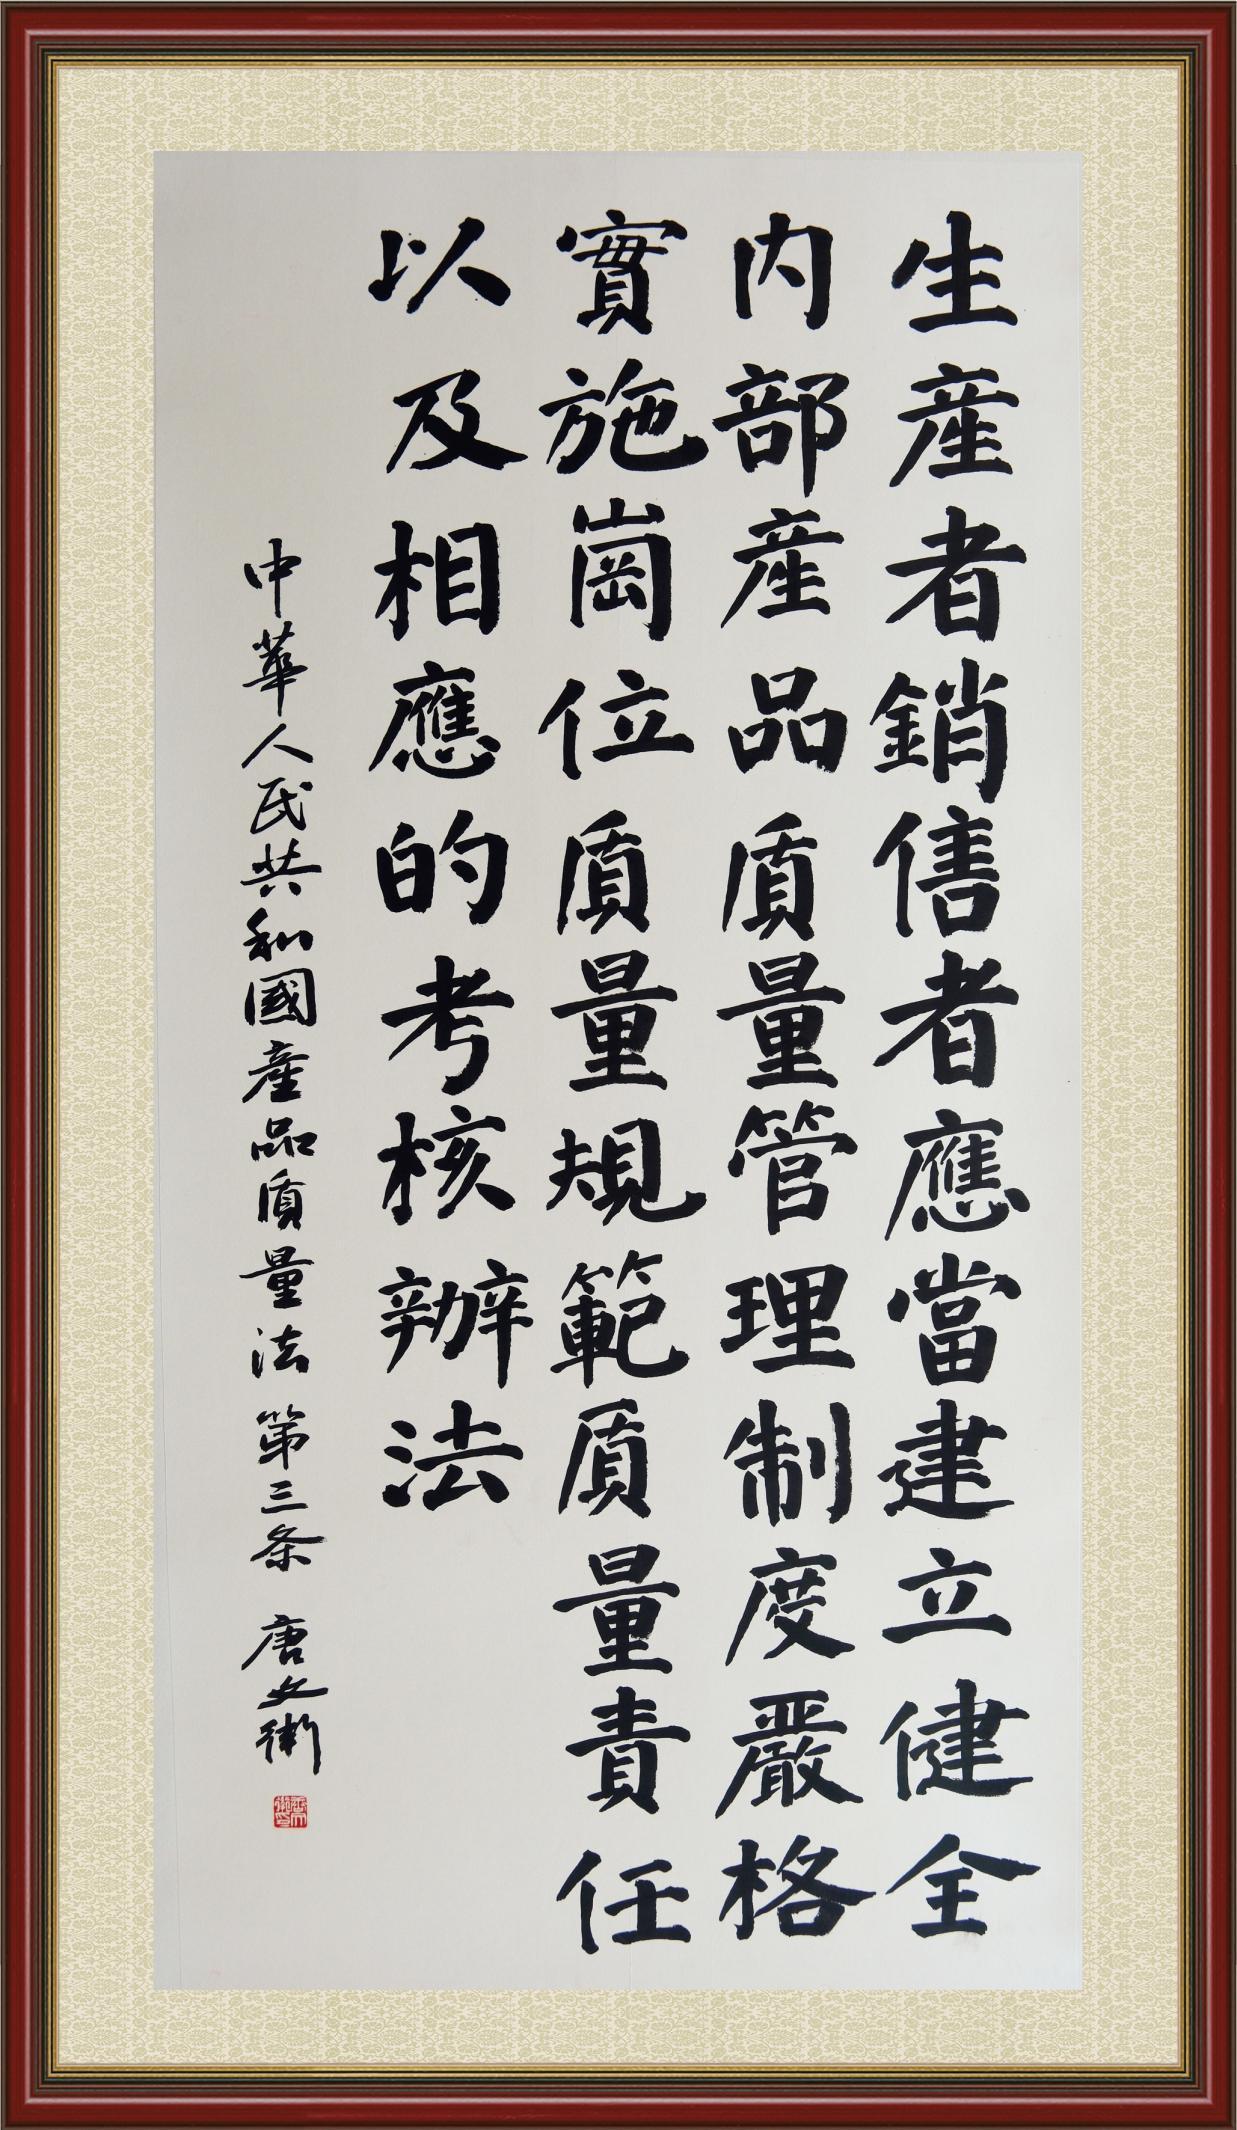 生産者銷售者應當建立健全
内部産品質量管理制度嚴格
實施崗位質量規範質量責任
以及相應的考核辦法
中華人民共和國産品質量法 第三条 唐文